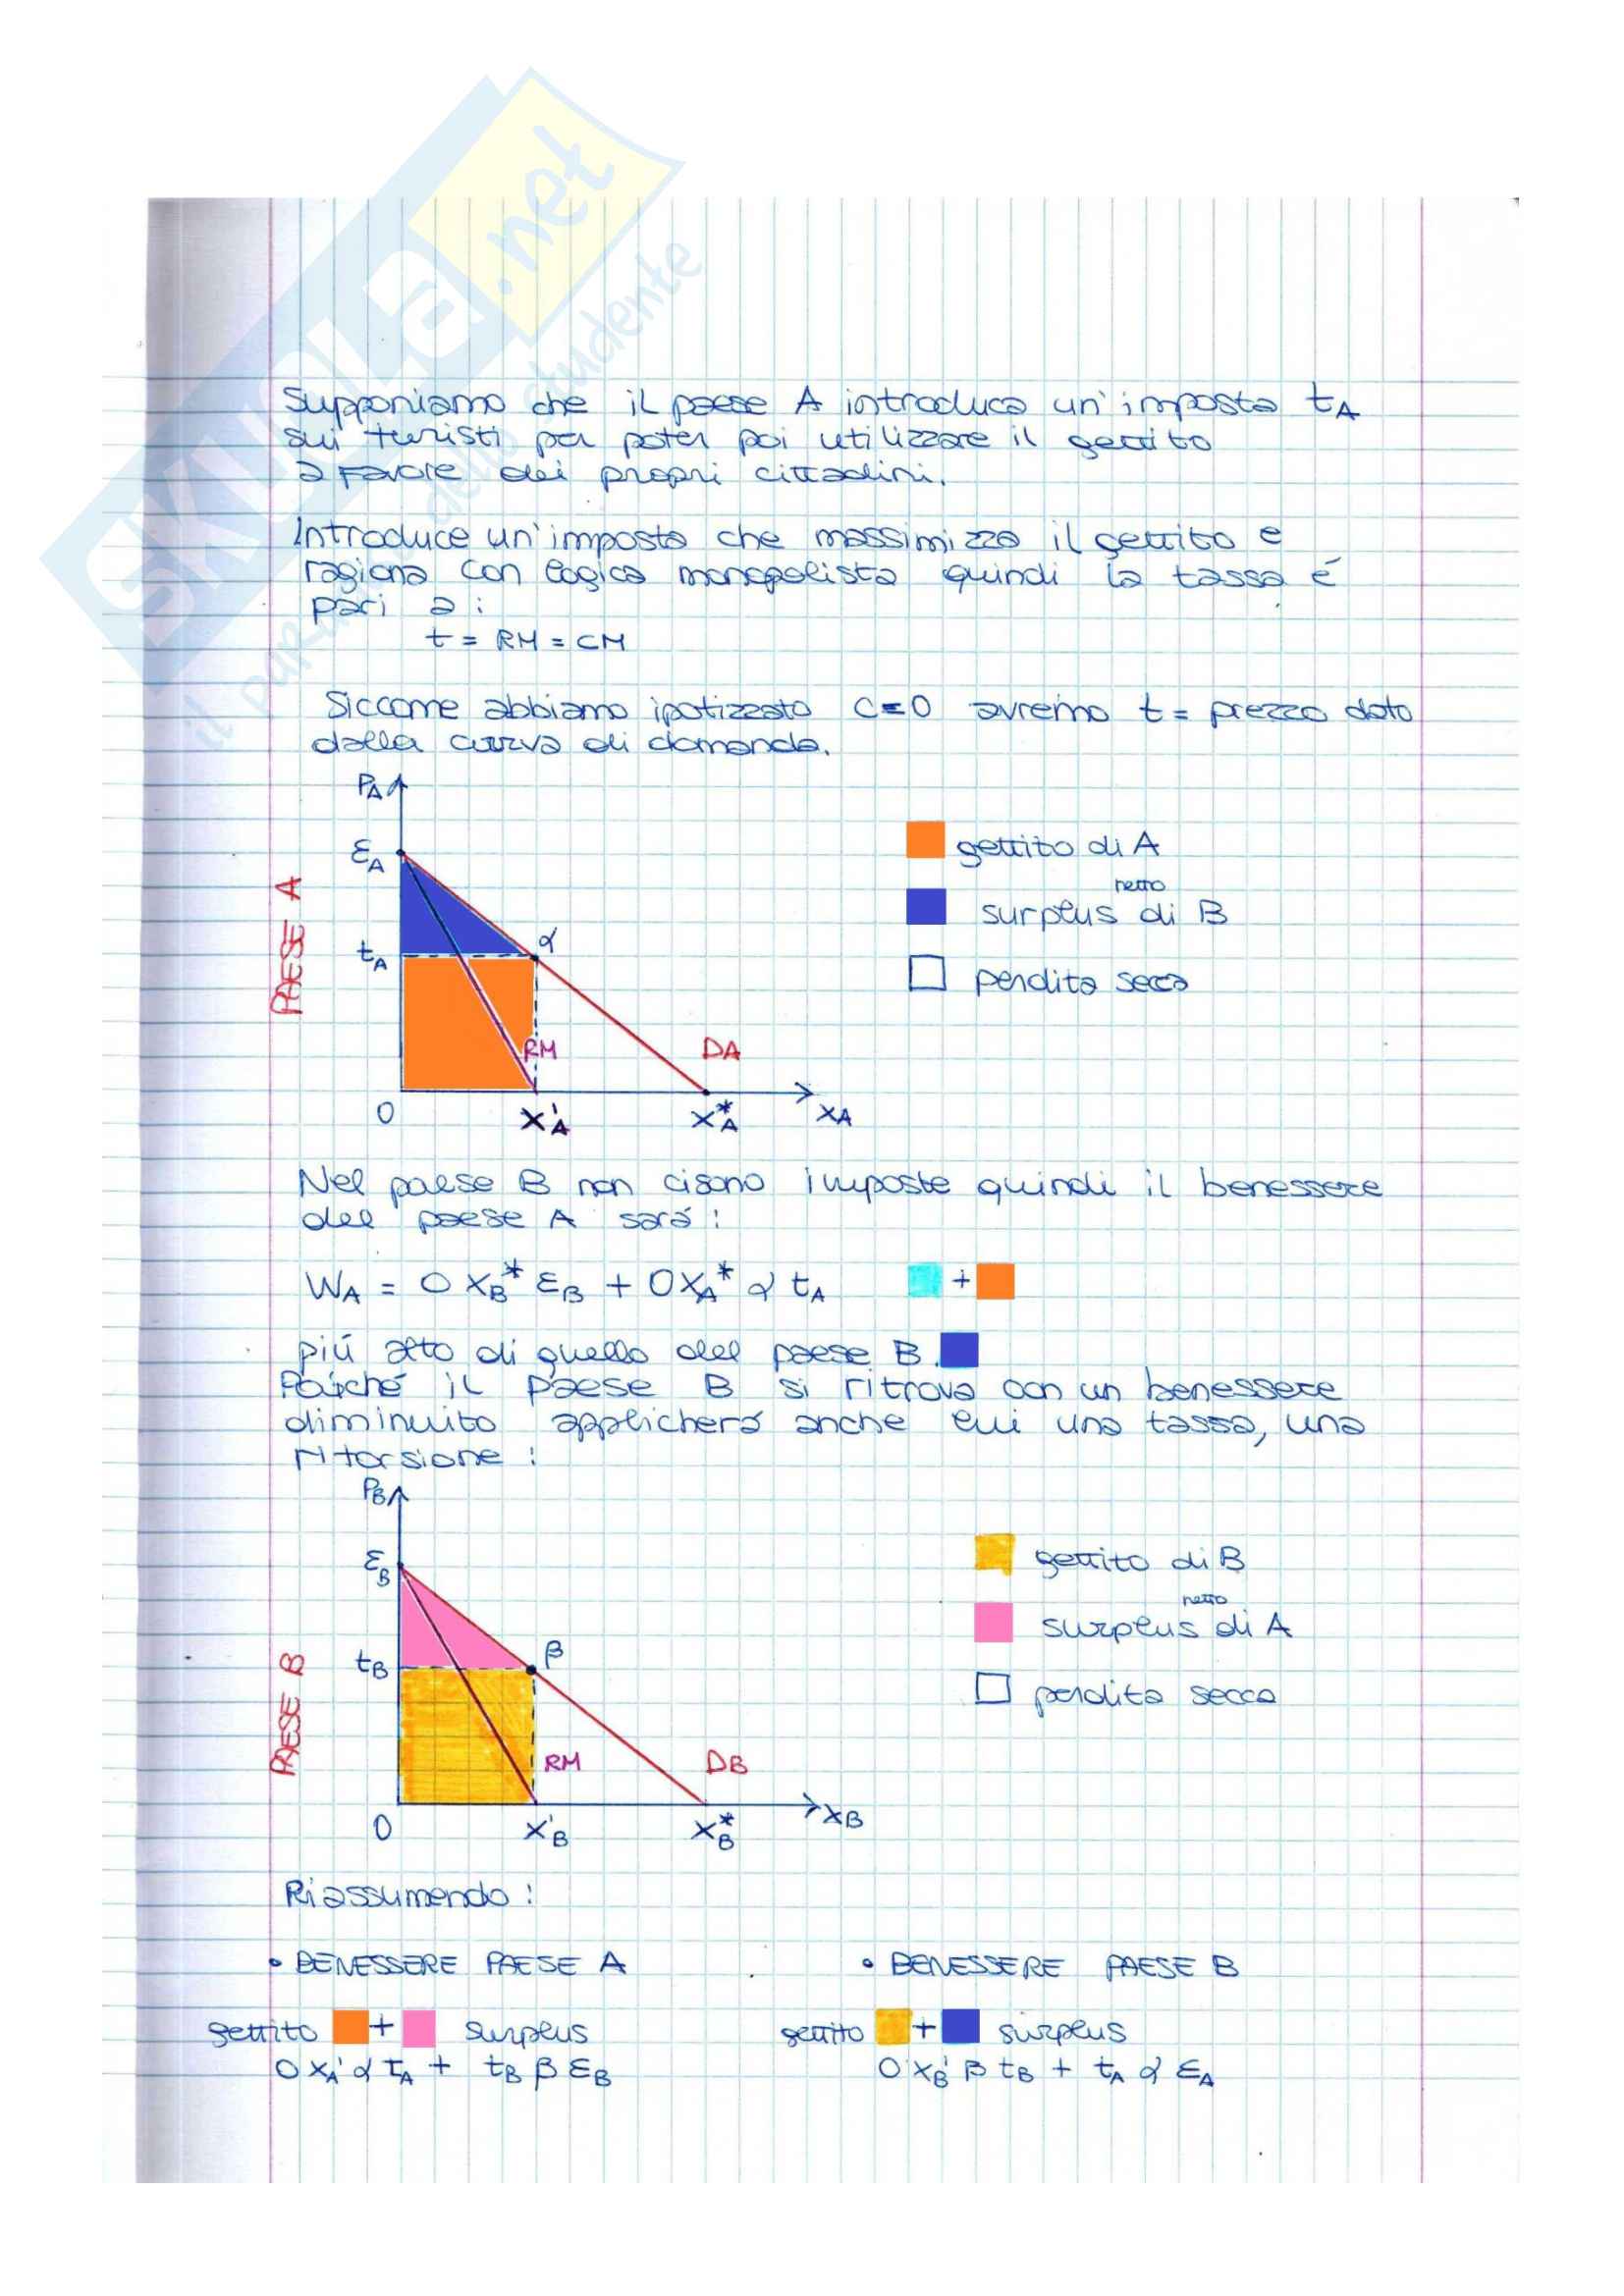 SKUOLA.net
il paradiso dello studente
Supponiamo che il paese A introduca un'imposta tA
sui turisti per poter poi utilizzare il gettito
a favore dei propri cittadini.
Introduce un'imposta che massimizza il gettito e
ragiona con logica monopolista quindi la tassa é
pari a :
t = RM = CM
Siccome abbiamo ipotizzato C=0 avremo t = prezzo dato
dalla curva di domanda.
PA
εA
tA
α
RM
DA
0
X'A
X*A
XA
PAESE A
gettito di A
netto
surplus di B
perdita secca
Nel paese B non ci sono imposte quindi il benessere
del paese A sará :
WA = 0 XB* εB + 0XA* α tA +
piú alto di quello del paese B.
Poiché il paese B si ritrova con un benessere
diminuito applicherá anche lui una tassa, una
ritorsione :
PB
εB
tB
β
RM
DB
0
X'B
X*B
XB
PAESE B
gettito di B
netto
surplus di A
perdita secca
Riassumendo :
• BENESSERE PAESE A
gettito + surplus
0 XA' α tA + tB β εB
• BENESSERE PAESE B
gettito + surplus
0 XB' β tB + tA α εA